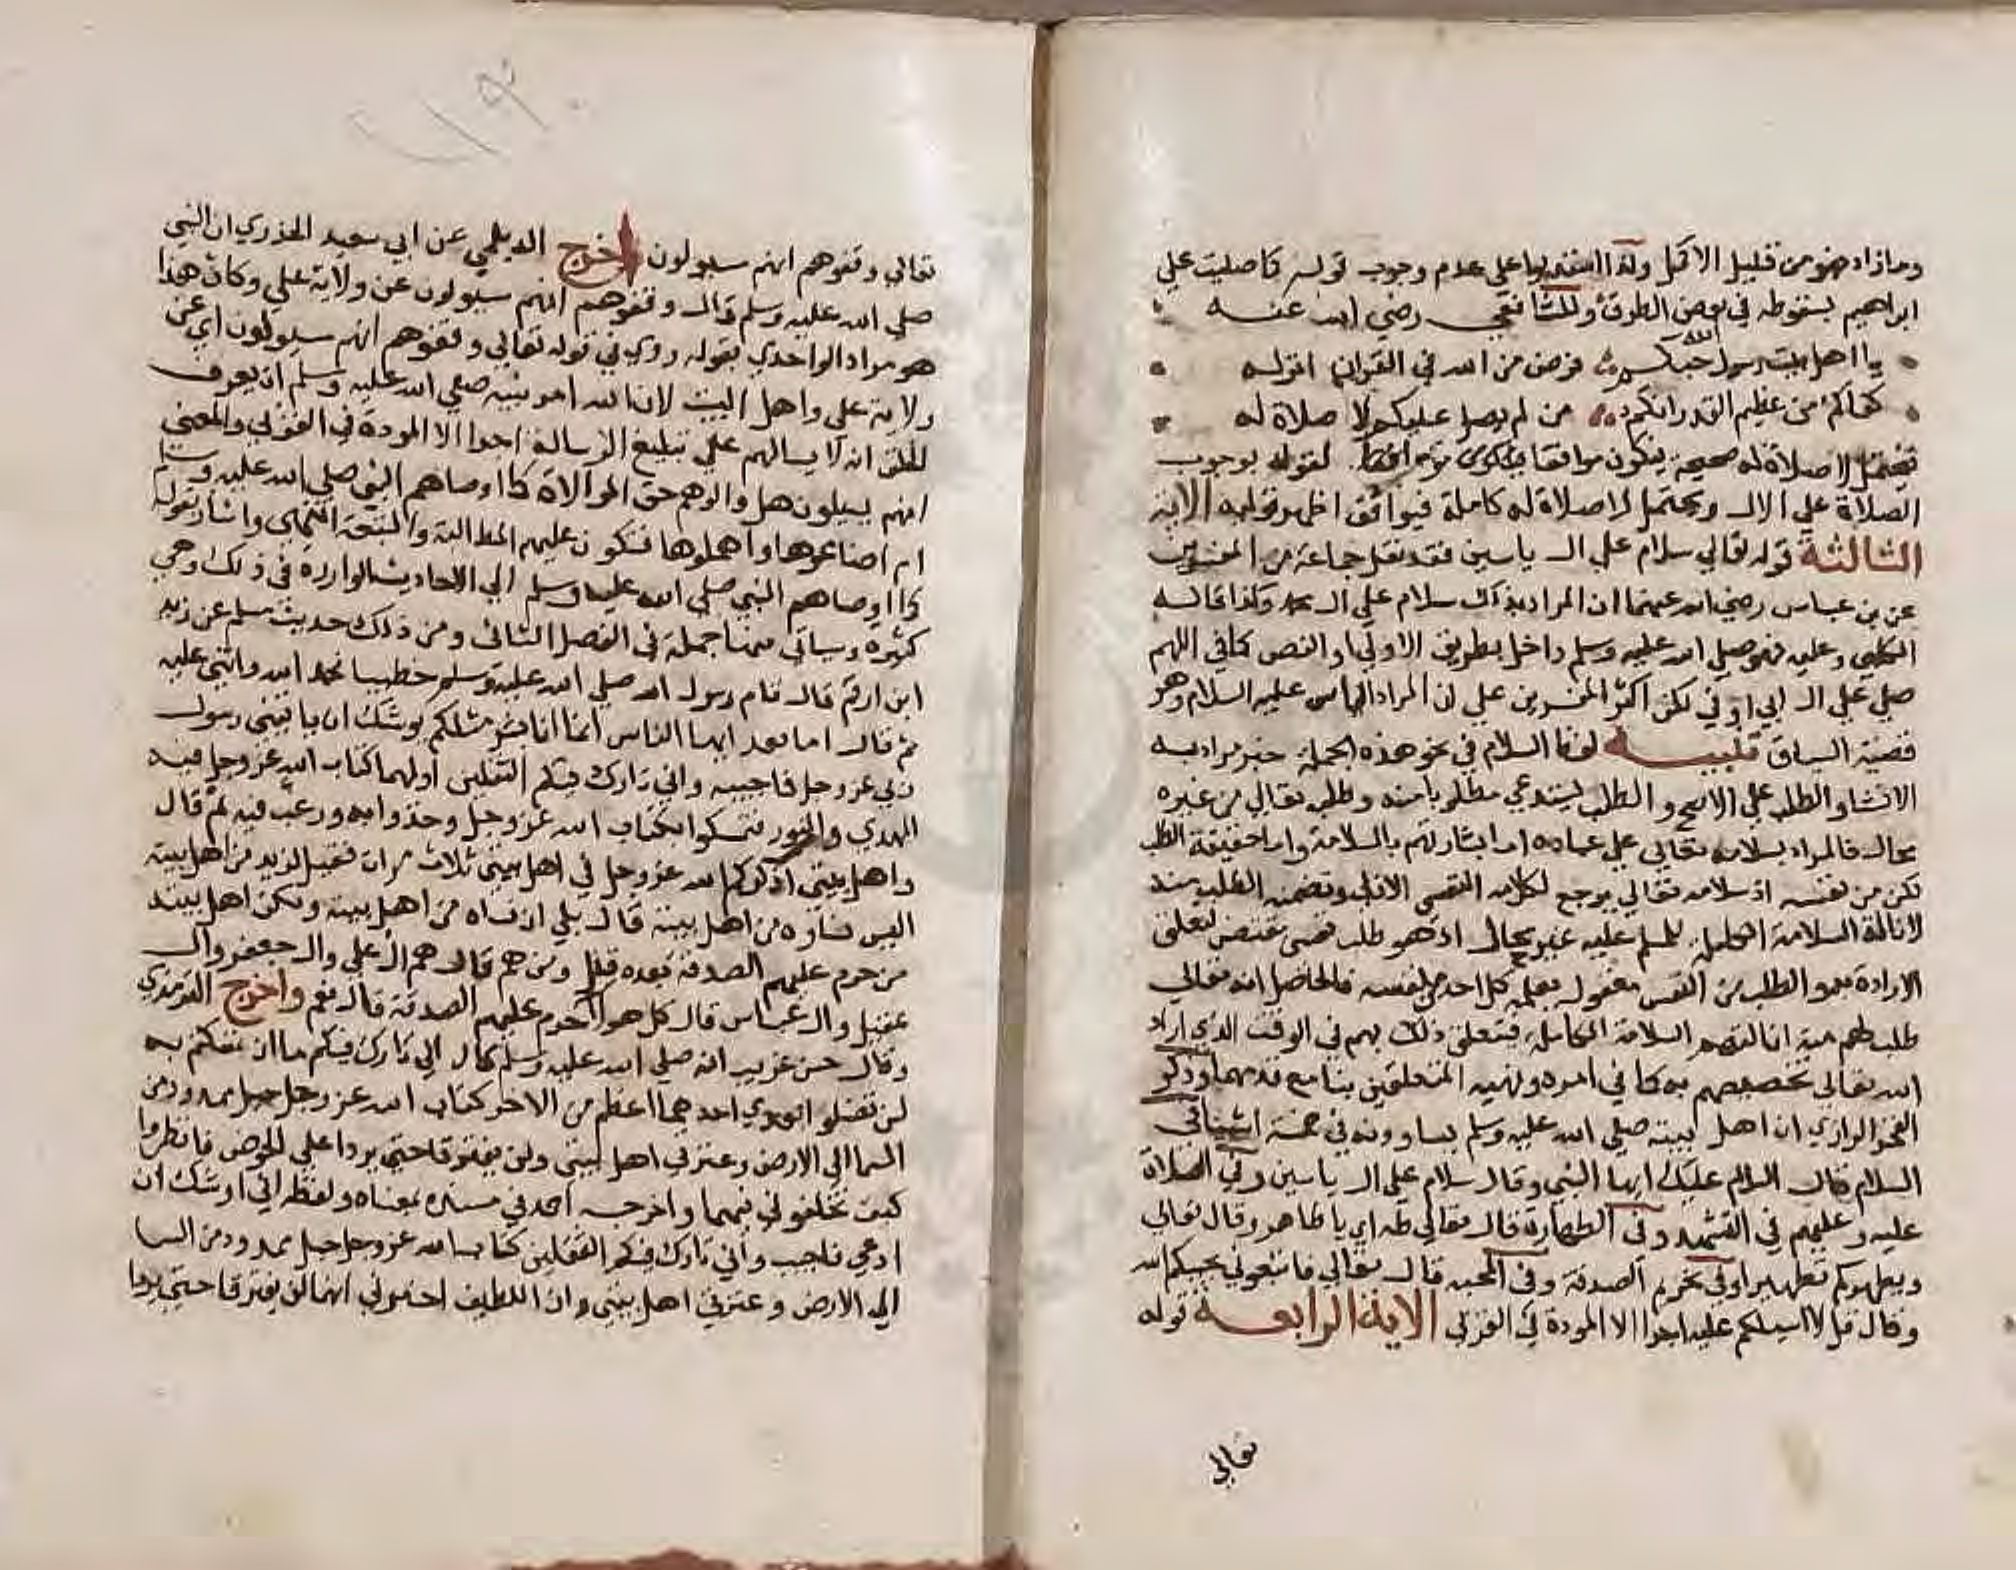 وما زاد فهو من قبيل الاكمل ولذا استدلوا على عدم وجوب قوله كما صليت على
ابراهيم بسقوطه في بعض الطرق وللشافعي رضي الله عنه
يا اهل بيت رسول الله حبكم فرض من الله في القران انزله
كفاكم من عظيم القدر انكم من لم يصل عليكم لا صلاة له
فيحتمل لا صلاة له صحيحة فيكون موافقا لقوله بوجوب
الصلاة على الال ويحتمل لا صلاة له كاملة فيوافق اظهر قوليه الاية
الثالثة قوله تعالي سلام علي ال ياسين فقد نقل جماعة من المفسرين
عن بن عباس رضي الله عنهما ان المراد بذلك سلام علي ال محمد وكذا قاله
الكلبي وعليه فهو صلي الله عليه وسلم داخل بطريق الاولي او النص كما في اللهم
صل علي ال ابي اوفي لكن اكثر المفسرين علي ان المراد الياس عليه السلام وهو
قضية السياق تنبيه لفظ السلام في نحو هذه الجملة خبر مراد به
الانشا والطلب علي الاصح والطلب يستدعي مطلوبا منه وطلبه تعالي من غيره
محال فالمراد بسلامه تعالي علي عباده اما بشارتهم بالسلامة واما حقيقة الطلب
لكن من نفسه اذ سلامه تعالي يرجع لكلامه النفسي الازلي وتضمنه الطلب منه
لانالة السلامة الكاملة للمسلم عليه غير محال اذ هو طلب نفسي مقتض لتعلق
الارادة به والطلب من النفس معقول يعلمه كل احد من نفسه فالحاصل انه تعالي
طلب لهم منه انالتهم السلامة الكاملة فيتعلق ذلك بهم في الوقت الذي اراد
الله تعالي تخصيصهم به كما في امره ونهيه المتعلقين بنا مع قدمهما وذكر
الفخر الرازي ان اهل بيته صلي الله عليه وسلم يساوونه في خمسة اشيا في
السلام قال السلام عليك ايها النبي وقال سلام علي ال ياسين وفي الصلاة
عليه وعليهم في التشهد وفي الطهارة قال تعالي طه اي يا طاهر وقال تعالي
ويطهركم تطهيرا وفي تحريم الصدقة وفي المحبة قال تعالي فاتبعوني يحببكم الله
وقال قل لا اسيلكم عليه اجرا الا المودة في القربي الاية الرابعة قوله
تعالي
تعالي وقفوهم انهم سيولون اخرج الديلمي عن ابي سعيد الخدري ان النبي
صلي الله عليه وسلم قال وقفوهم انهم سيولون عن ولاية علي وكان هذا
هو مراد الواحدي بقوله روي في قوله تعالي وقفوهم انهم سيولون اي عن
ولاية علي واهل البيت لان الله امر نبيه صلي الله عليه وسلم ان يعرف
الخلق ان لا يسالهم علي تبليغ الرسالة اجرا الا المودة في القربي والمعني
انهم يسيلون هل والوهم حق الموالاة كما اوصاهم النبي صلي الله عليه وسلم
ام اضاعوها واهملوها فتكون عليهم المطالبة والتبعة انتهي واشار بقوله
كما اوصاهم النبي صلي الله عليه وسلم الي الاحاديث الواردة في ذلك وهي
كثيرة وسياتي منها جملة في الفصل الثاني ومن ذلك حديث مسلم عن زيد
ابن ارقم قال قام رسول الله صلي الله عليه وسلم خطيبا فحمد الله واثني عليه
ثم قال اما بعد ايها الناس انما انا بشر مثلكم يوشك ان ياتيني رسول
ربي عز وجل فاجيبه واني تارك فيكم الثقلين اولهما كتاب الله عز وجل فيه
الهدي والنور فتمسكوا بكتاب الله عز وجل وخذوا به ورغب فيه ثم قال
واهل بيتي اذكركم الله عز وجل في اهل بيتي ثلاث مرات فقيل لزيد من اهل بيته
اليس نساوه من اهل بيته قال بلي ان نساه من اهل بيته ولكن اهل بيته
من حرم عليهم الصدقة بعده قيل ومن هم قال هم ال علي وال جعفر وال
عقيل وال عباس قال كل هولا حرم عليهم الصدقة قال نعم واخرج الترمذي
وقال حسن غريب انه صلي الله عليه وسلم قال اني تارك فيكم ما ان تمسكتم به
لن تضلوا بعدي احدهما اعظم من الاخر كتاب الله عز وجل حبل ممدود من
السما الي الارض وعترتي اهل بيتي ولن يفترقا حتي يردا علي الحوض فانظروا
كيف تخلفوني فيهما واخرجه احمد في مسنده بمعناه ولفظه اني اوشك ان
ادعي فاجيب واني تارك فيكم الثقلين كتاب الله عز وجل حبل ممدود من السما
الي الارض وعترتي اهل بيتي وان اللطيف اخبرني انهما لن يفترقا حتي يردا